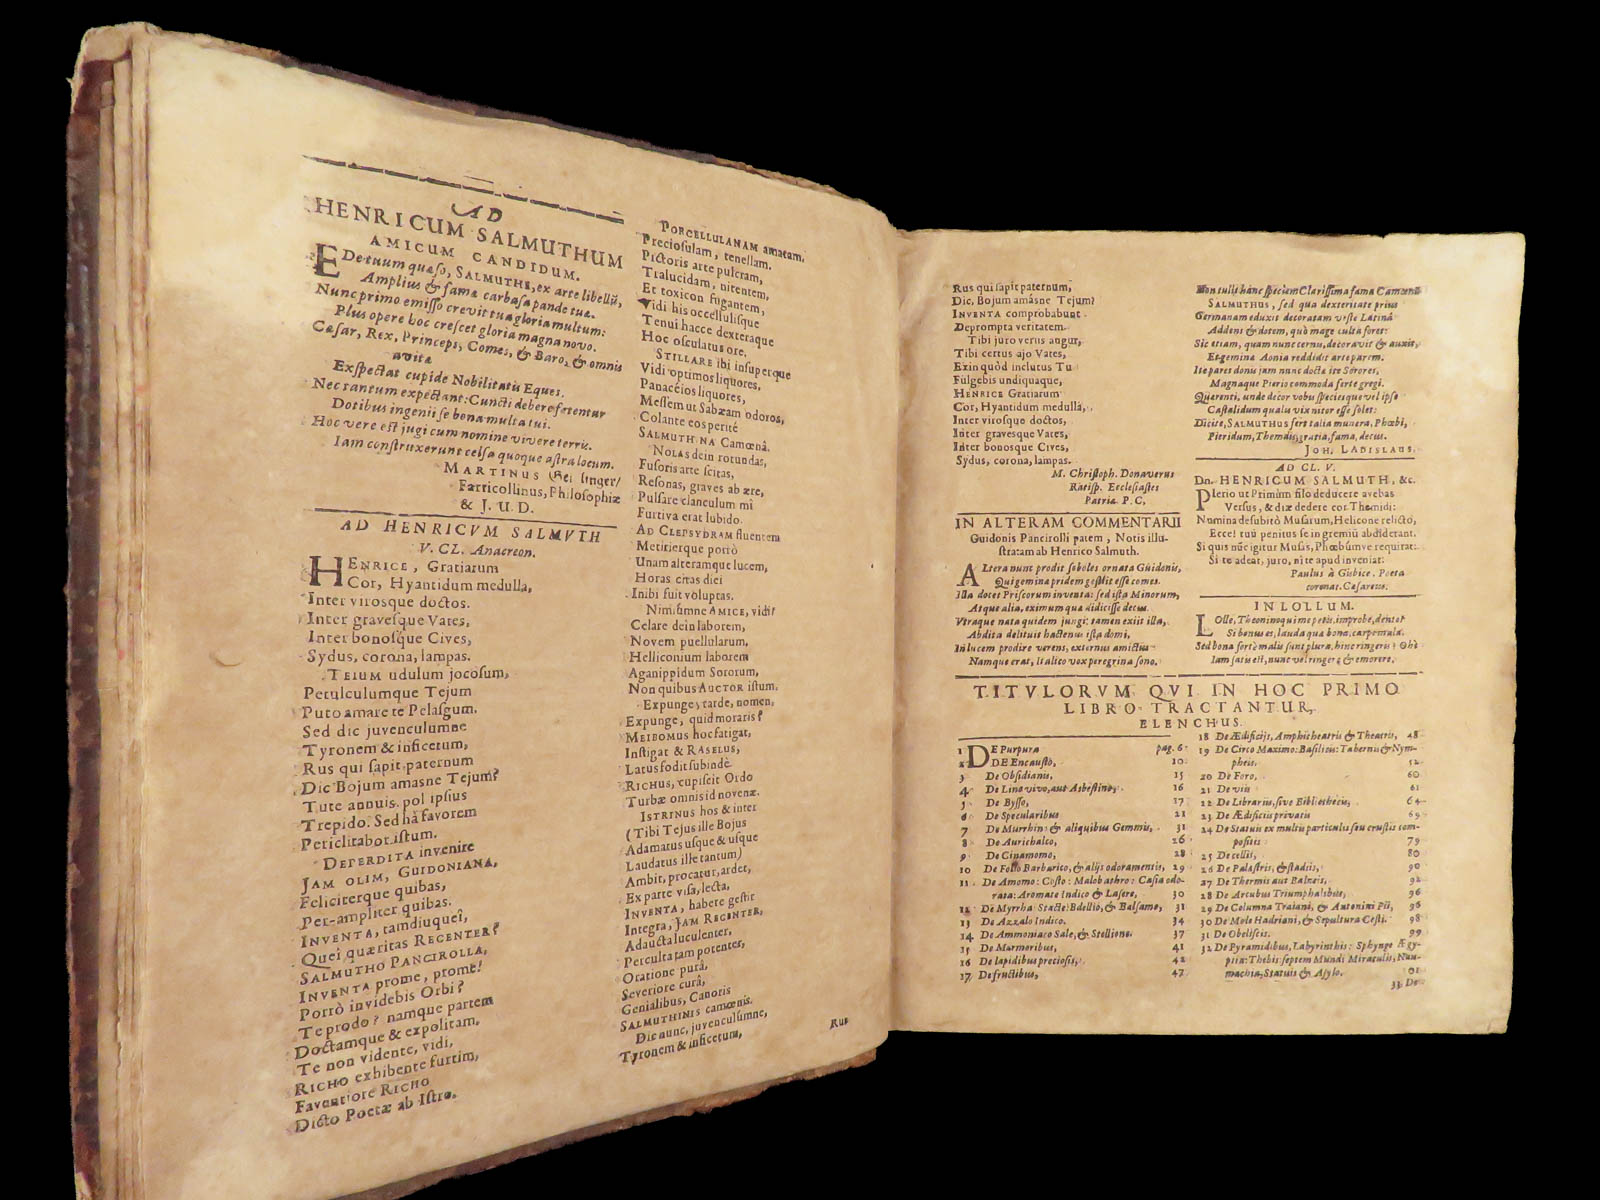 AD
HENRICUM SALMUTHUM
AMICUM CANDIDUM.
EDe tuum quæso, SALMUTHE, ex arte libellũ,
Amplius & fama carbasa pande tuæ.
Nunc primo emisso crevit tua gloria multum:
Plus opere hoc crescet gloria magna novo.
Cæsar, Rex, Princeps, Comes, & Baro, & omnis
avita
Exspectat cupide Nobilitatis Eques.
Nec tantum expectant: Cuncti debere fatentur
Dotibus ingenii se bona multa tui.
Hoc vere est jugi cum nomine vivere terris.
Iam construxerunt celsa quoque astra locum.
MARTINUS
Farricollinus, Philosophiæ
& J. U. D.
AD HENRICVM SALMVTH
V. CL. Anacreon.
HENRICE, Gratiarum
Cor, Hyantidum medulla,
Inter virosque doctos.
Inter gravesque Vates,
Inter bonosque Cives,
Sydus, corona, lampas.
TEIUM udulum jocosum,
Petulculumque Tejum
Puto amare te Pelasgum.
Sed dic juvenculumne
Tyronem & inficetum,
Rus qui sapit paternum
Dic Bojum amasne Tejum?
Tute annuis. pol ipsius
Trepido. Sed hâ favorem
Periclitabor istum.
DEPERDITA invenire
JAM OLIM, GUIDONIANA,
Feliciterque quibas,
Per-ampliter quibas.
INVENTA, tamdiuqueî,
Quei quæritas RECENTER?
SALMUTHO PANCIROLLA,
INVENTA prome, prome!
Porrò invidebis Orbi?
Te prodo? namque partem
Doctamque & expolitam,
Te non vidente, vidi,
RICHO exhibente furtim,
Faventiore RICHO
Dicto Poetæ ab Istro.
PORCELLULANAM amatam.
Preciosulam, tenellam.
Pictoris arte pulcram,
Tralucidam, nitentem,
Et toxicon fugantem,
Vidi his occellulisque
Tenui hacce dexteraque
Hoc osculatus ore.
STILLARE ibi insuperque
Vidi optimos liquores,
Panacéios liquores,
Messem ut Sabæam odoros,
Colante eos perité
SALMUTHINA Camœnâ.
NOLAS dein rotundas,
Fusoris arte scitas,
Resonas, graves ab ære,
Pulsare clanculum mî
Furtiva erat lubido.
AD CLEPSYDRAM fluentem
Metirierque porrò
Unam alteramque lucem,
Horas citas diei
Inibi fuit voluptas.
Nimiumne AMICE, vidi?
Celare dein laborem,
Novem puellularum,
Helliconium laborem
Aganippidum Sororum,
Non quibus AUCTOR istum.
Expunge, tarde, nomen,
Expunge, quid moraris?
MEIBOMUS hoc fatigat,
Instigat & RASELUS,
Latus fodit subindè
RICHUS, cupiscit Ordo
Turbæ omnis id novenæ.
ISTRINUS hos & inter
(Tibi Tejus ille Bojus
Adamatus usque & usque
Laudatus ille tantum)
Ambit, procatur, ardet,
Ex parte visa, lecta,
INVENTA, habere gestit
Integra, JAM RECENTER,
Adaucta luculenter,
Percultatam potenter,
Oratione purâ,
Severiore curâ,
Genialibus, Canoris
SALMUTHINIS camœnis.
Dic nunc, juvenculumne,
Tyronem & inficetum,
Rus
Rus qui sapit paternum,
Dic, Bojum amásne Tejum?
INVENTA comprobabunt
Deprompta veritatem.
Tibi juro verus augur,
Tibi certus ajo Vates,
Exin quòd inclutus Tu
Fulgebis undiquaque,
HENRICE Gratiarum
Cor, Hyantidum medulla,
Inter virosque doctos,
Inter gravesque Vates,
Inter bonosque Cives,
Sydus, corona, lampas.
M. Christoph. Donaverus
Ratisp. Ecclesiastes
Patria P. C.
IN ALTERAM COMMENTARII
Guidonis Pancirolli patem, Notis illu-
stratam ab Henrico Salmuth.
ALtera nunt prodit soboles ornata Guidonis,
Qui gemina pridem gestiit esse comes.
Illa docet Priscorum inventa: sed ista Minorum,
Atque alia, eximum qua didicisse decus.
Vtraque nata quidem jungi: tamen exiit illa,
Abdita delituit hactenus ista domi,
In lucem prodire verens, externus amictus
Namque erat, Italico vox peregrina sono.
Non tulit hanc speciem Clarissima fama Camœna
SALMUTHUS, sed qua dexteritate prius
Germanam eduxit decoratam veste Latinâ
Addens & dotem, quò mage culta foret:
Sic etiam, quam nunc cernu, decoravit & auxit,
Et gemina Aonia reddidit arte parem.
Ite pares donis jam nunc docta ite Sorores,
Magnaque Pieriis commoda ferte gregi.
Querenti, unde decor vobis speciesque vel ipse
Castalidum qualis vix nitor esse solet:
Dicite, SALMUTHUS fert talia munera, Phœbi,
Pieridum, Themdis gratia, fama, decus.
JOH. LADISLAUS.
AD CL. V.
Dn. HENRICUM SALMUTH, &c.
PLerio ut Primùm filo deducere avebas
Versus, & diæ dedere cor Themidi:
Numina desubitò Musarum, Helicone relicto,
Ecce! tuũ penitus se in gremiũ abdiderant.
Si quis nũc igitur Musis, Phœbúmve requirat:
Si te adeat, juro, nî te apud inveniat:
Paulus à Gisbice. Poeta
coronat. Cæsareus.
IN LOLLUM.
LOlle, Theonino qui me petis, improbe, dente?
Si bonus es, lauda qua bona, carpe mala.
Sed bona fortè malis sunt plura, hinc ringeris? Ohò
Iam satis est, nunc vel ringere & emorere.
TITVLORVM QVI IN HOC PRIMO
LIBRO TRACTANTUR,
ELENCHUS.
1 DE Purpura pag. 6
2 DE Encausto, 10
3 De Obsidianis, 15
4 De Lino vivo, aut Asbestino, 16
5 De Bysso, 17
6 De Specularibus 21
7 De Murrhinis & aliquibus Gemmis, 31
8 De Aurichalco, 26
9 De Cinamomo, 28
10 De Folio Barbarico, & alijs odoramentis, 29
11 De Amomo: Costo: Malobathro: Casia odo-
rata: Aromate Indico & Lasere, 30
12 De Myrrha: Stacte: Bdellio, & Balsamo, 31
13 De Azzalo Indico. 34
14 De Ammoniaco Sale, & Stellione. 37
15 De Marmoribus, 41
16 De lapidibus preciosis, 42
17 De fructibus, 47
18 De Ædificijs, Amphitheatris & Theatris, 48
19 De Circo Maximo: Basilicis: Tabernis & Nym-
phæis. 52
20 De Foro, 60
21 De viis 61
22 De Librariis, sive Bibliothecis, 64
23 De Ædificiis privatis 69
24 De Statuis ex multis particulis seu crustis com-
positis 79
25 De cellis, 80
26 De Palæstris, & stadiis, 90
27 De Thermis aut Balneis, 92
28 De Arcubus Triumphalibus, 96
29 De Columna Traiani, & Antonini Pii, 96
30 De Mole Hadriani, & Sepultura Cesti. 98
31 De Obeliscis. 99
32 De Pyramidibus, Labyrinthis: Sphynge Ægy-
ptia: Thebis: septem Mundi Miraculis, Nau-
machia, Statuis & Asylo. 101
33 De